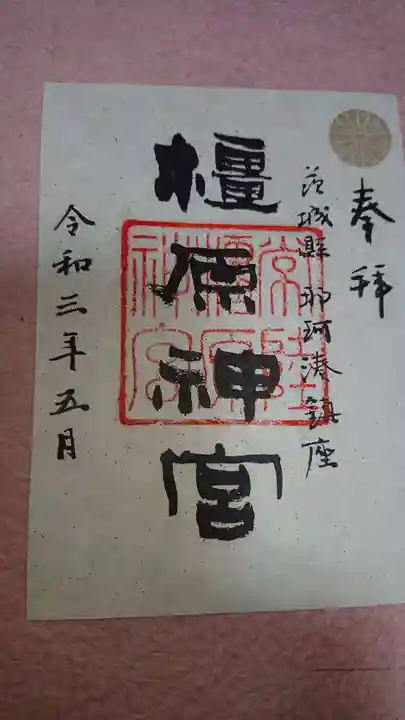 奉拝
茨城縣那珂湊鎮座
橿原神宮
常陸橿原神宮
令和三年五月